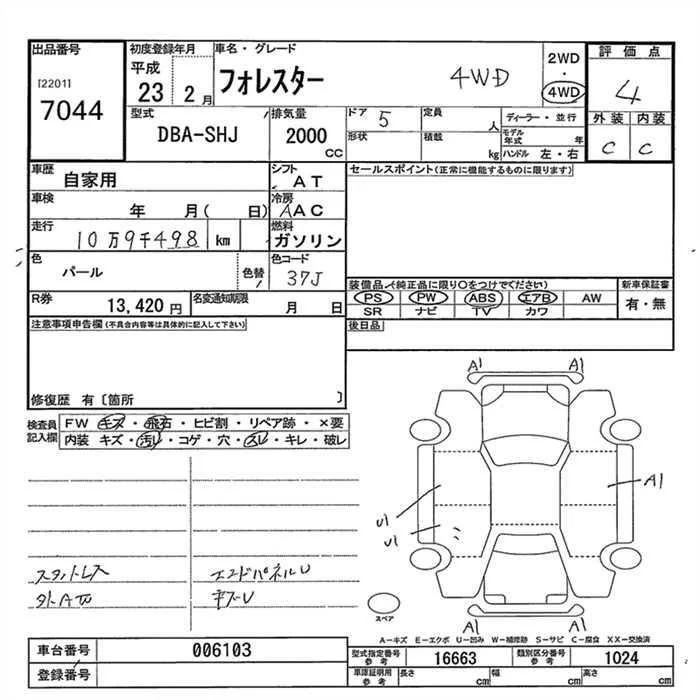 出品番号
[2201]
7044
初度登録年月
平成
23 2月
車名・グレード
フォレスター 4WD
2WD
・
4WD
評価点
4
外装 内装
C C
型式
DBA-SHJ
排気量
2000
CC
ドア 5
定員 人
形状
積載 kg
ディーラー・並行
モデル年式 年
ハンドル 左・右
車歴
自家用
シフト
AT
車検
年 月( 日)
冷房
AAC
走行
10万9千498 km
燃料
ガソリン
色
パール
色替
色コード
37J
R券
13,420円
名変通知期限
月 日
セールスポイント(正常に機能するものに限ります)
装備品 (純正品に限り○をつけてください)
PS PW ABS エアB AW
SR ナビ TV カワ
新車保証書
有・無
後日品
注意事項申告欄(不具合内容等は具体的に記入して下さい)
修復歴 有〔箇所 〕
検査員
記入欄
FW キズ・飛石・ヒビ割・リペア跡・×要
内装 キズ・汚レ・コゲ・穴・スレ・キレ・破レ
A1 A1
A1
U1
U1
A1 A1
スペア
エンドパネルU
A-キズ E-エクボ U-凹み W-補修跡 S-サビ C-腐食 XX-交換済
車台番号
006103
登録番号
型式指定番号
参考
16663
類別区分番号
参考
1024
車庫証明用
参考
長さ cm
幅 cm
高さ cm